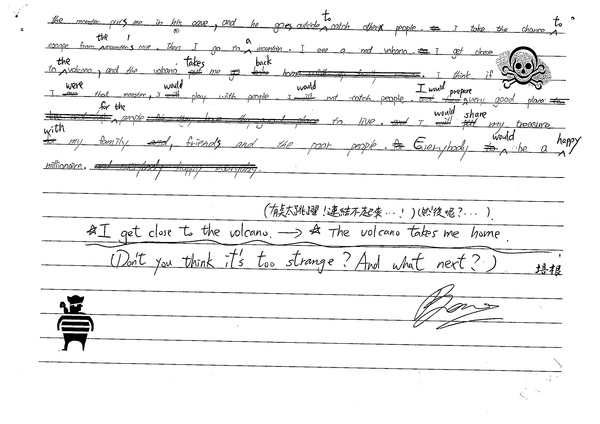 the monster puts me in his cave, and he goes outside to catch others people. I take the chance to
escape from the monster's cave. Then I go to a mountain. I see a red volcano. I get close
to the volcano, and the volcano takes me go back home. I think if
I were that monster, I would play with people. I would not catch people. I would prepare very good place
for the people to live. and I would share my treasure
with my family and, friends and the poor people. Everybody would be a happy
millionaire.
(有点太跳躍!連結不起來…!)(然後呢?…)
☆I get close to the volcano. → ☆ The volcano takes me home.
(Don't you think it's too strange? And what next?) 培根